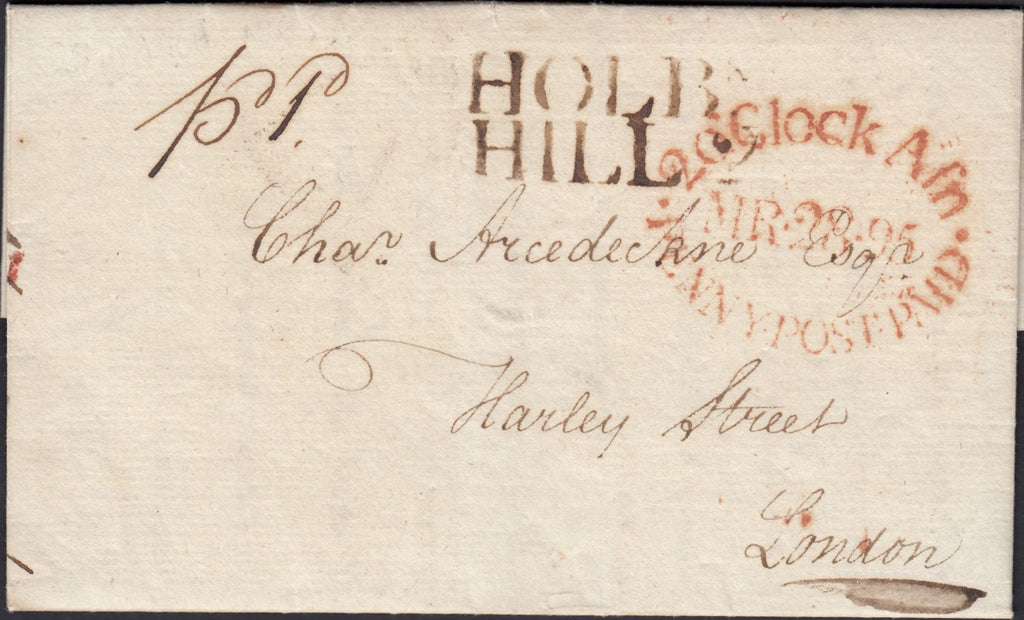 pd 1d.
HOLB
HILL
2 o'Clock Afn
MR·28·95
PENNY·POST·PAID
Chas. Arcedeckne Esqr.
Harley Street
London